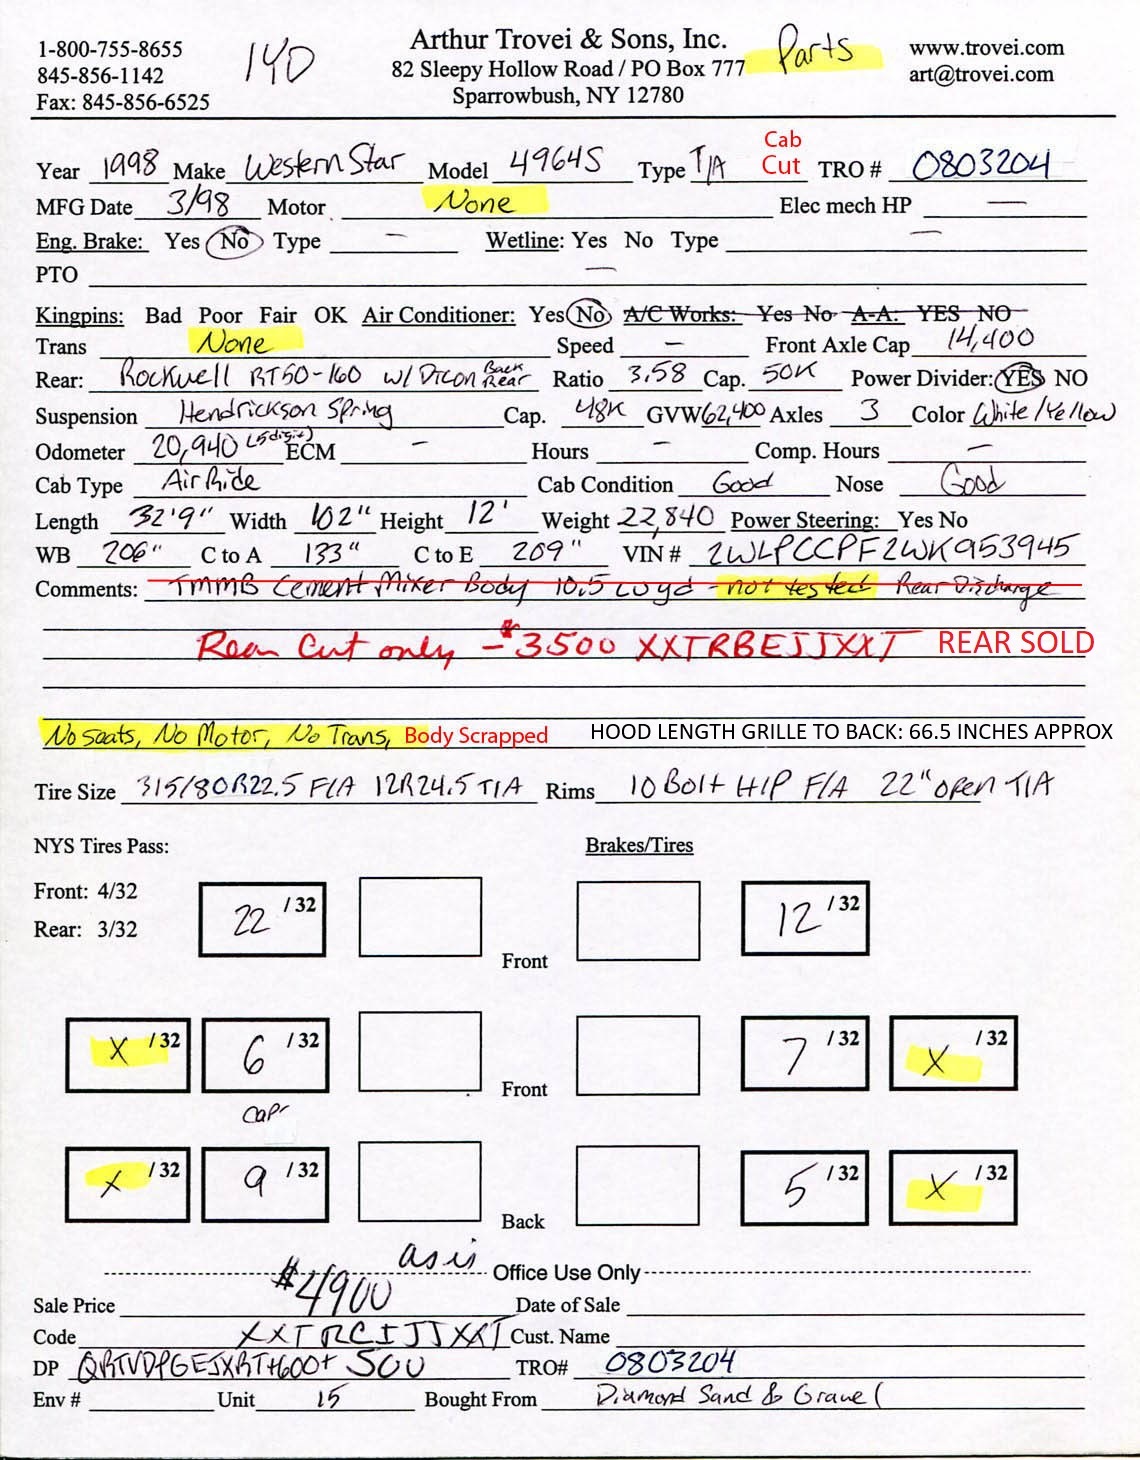 1-800-755-8655 140 Arthur Trovei & Sons, Inc. Parts www.trovei.com
845-856-1142 82 Sleepy Hollow Road / PO Box 777 art@trovei.com
Fax: 845-856-6525 Sparrowbush, NY 12780
Cab
Year 1998 Make Western Star Model 4964S Type T/A Cut TRO # 0803204
MFG Date 3/98 Motor None Elec mech HP —
Eng. Brake: Yes No Type — Wetline: Yes No Type —
PTO —
Kingpins: Bad Poor Fair OK Air Conditioner: Yes No A/C Works: Yes No A-A: YES NO
Trans None Speed — Front Axle Cap 14,400
Rear: Rockwell RT50-160 w/ Dicon Back Rear Ratio 3.58 Cap. 50K Power Divider: YES NO
Suspension Hendrickson Spring Cap. 48K GVW 62,400 Axles 3 Color White/Yellow
Odometer 20,940 (5 digit) ECM — Hours — Comp. Hours —
Cab Type Air Ride Cab Condition Good Nose Good
Length 32'9" Width 102" Height 12' Weight 22,840 Power Steering: Yes No
WB 206" C to A 133" C to E 209" VIN # 2WLPCCPF2WK953945
Comments: TMMB Cement Mixer Body 10.5 cu yd - not tested Rear Discharge
Rear Cut only - $3500 XXTRBEJJXXT REAR SOLD
No seats, No Motor, No Trans, Body Scrapped HOOD LENGTH GRILLE TO BACK: 66.5 INCHES APPROX
Tire Size 315/80R22.5 F/A 12R24.5 T/A Rims 10 Bolt H/P F/A 22" open T/A
NYS Tires Pass: Brakes/Tires
Front: 4/32 22 /32 12 /32
Rear: 3/32
Front
X /32 6 /32 7 /32 X /32
Front
cap
X /32 9 /32 5 /32 X /32
Back
as is Office Use Only
Sale Price $4900 Date of Sale
Code XXTRCIJJXXT Cust. Name
DP QRTVDPGEJXRT+600+ 500 TRO# 0803204
Env # Unit 15 Bought From Diamond Sand & Gravel